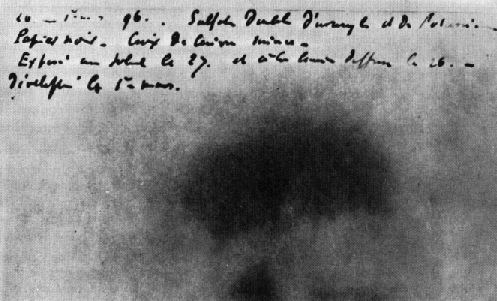 96. Sulfate Double D'uranyle et de Potassium
Papier noir. Croix de Cuivre mince.
Exposé au soleil le 27. et à la lumière diffuse le 26. -
Développé le 1er mars.